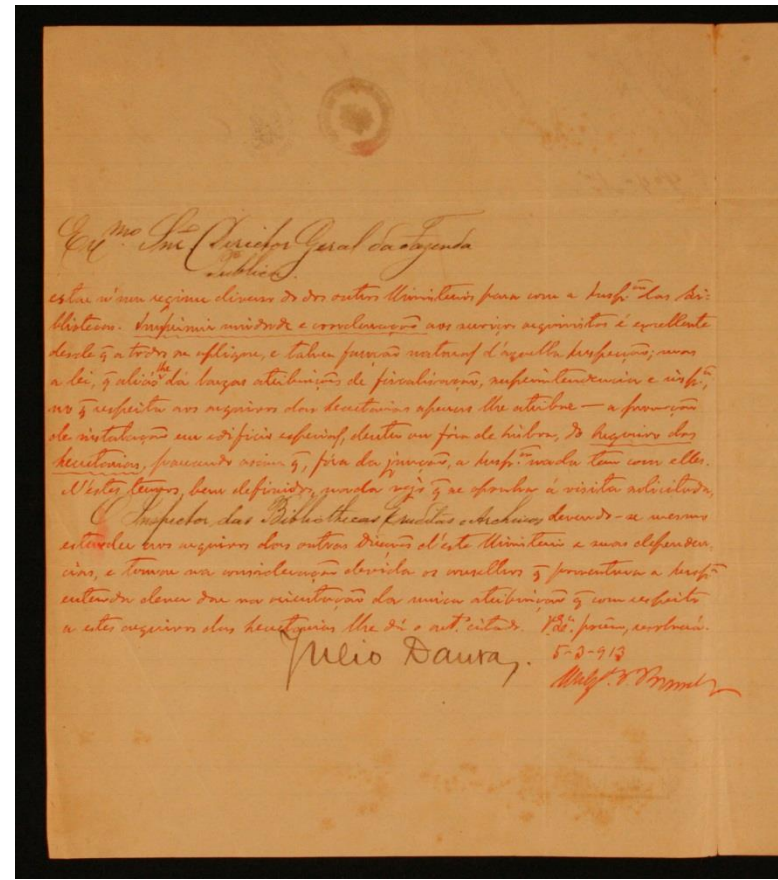 Ex.mo Snr. Director Geral da Fazenda
Publica.
estar n'um regimen diverso do dos outros Ministerios para com a Insp.ção das Bi-
bliotecas. Imprimir unidade e coordenação aos serviços arquivistas é excellente
desde q̃ a todos se aplique, e talvez função natural d'aquella Inspecção; mas
a lei, q̃ aliás lhe dá largas atribuições de fiscalisação, superintendencia e insp.ção,
no q̃ respeita aos arquivos das secretarias apenas lhe atribue — a
de instalação em edificio especial, dentro ou fóra de Lisboa, do Arquivo das
Secretarias, parecendo assim q̃, fóra da função, a Insp.ção nada tem com elles.
N'estes termos, bem definidos, nada vejo q̃ se oponha á visita solicitada,
O Inspector das Bibliothecas Eruditas e Archivos devendo-se mesmo
estender aos arquivos das outras Direcções d'este Ministerio e suas dependen-
cias, e tomar na consideração devida os conselhos q̃ porventura a Insp.ção
entenda dever dar na orientação da unica atribuição q̃ com respeito
a estes arquivos das Secretarias lhe dá o art.º citado. V. Ex.ª, porém, resolverá.
Julio Dantas.
5-3-913